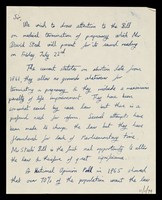 Sir,
We wish to draw attention to the Bill
on medical termination of pregnancy which Mr
David Steel will present for its second reading
on Friday July 22nd
The current statutes on abortion date from
1861, they allow no grounds whatsoever for
terminating a pregnancy to
penalty of life imprisonment. have been
eroded by case law but there is a
need for reform. Several attempts have
been made to change the law but they have
for lack of Parliamentary time.
Mr Steel's Bill is the first real opportunity to alter
the law
A National Opinion Poll in 1965 showed
that over 70% of the population want the law